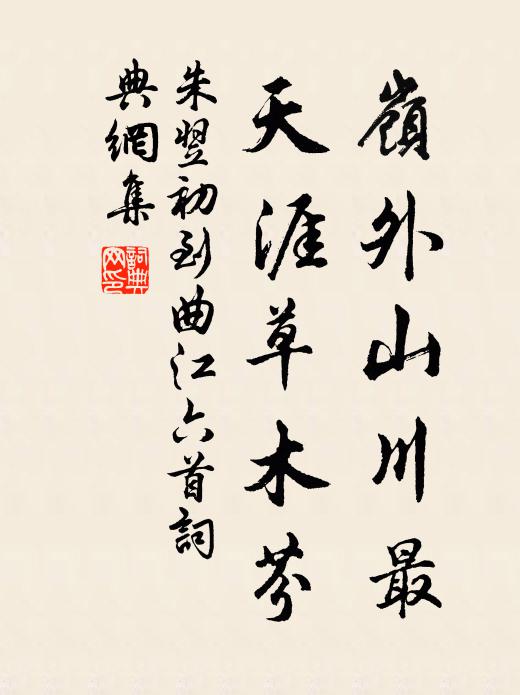 嶺外山川最
天涯草木芬
朱翌初到曲江六首詞
典網集
詞典
网印